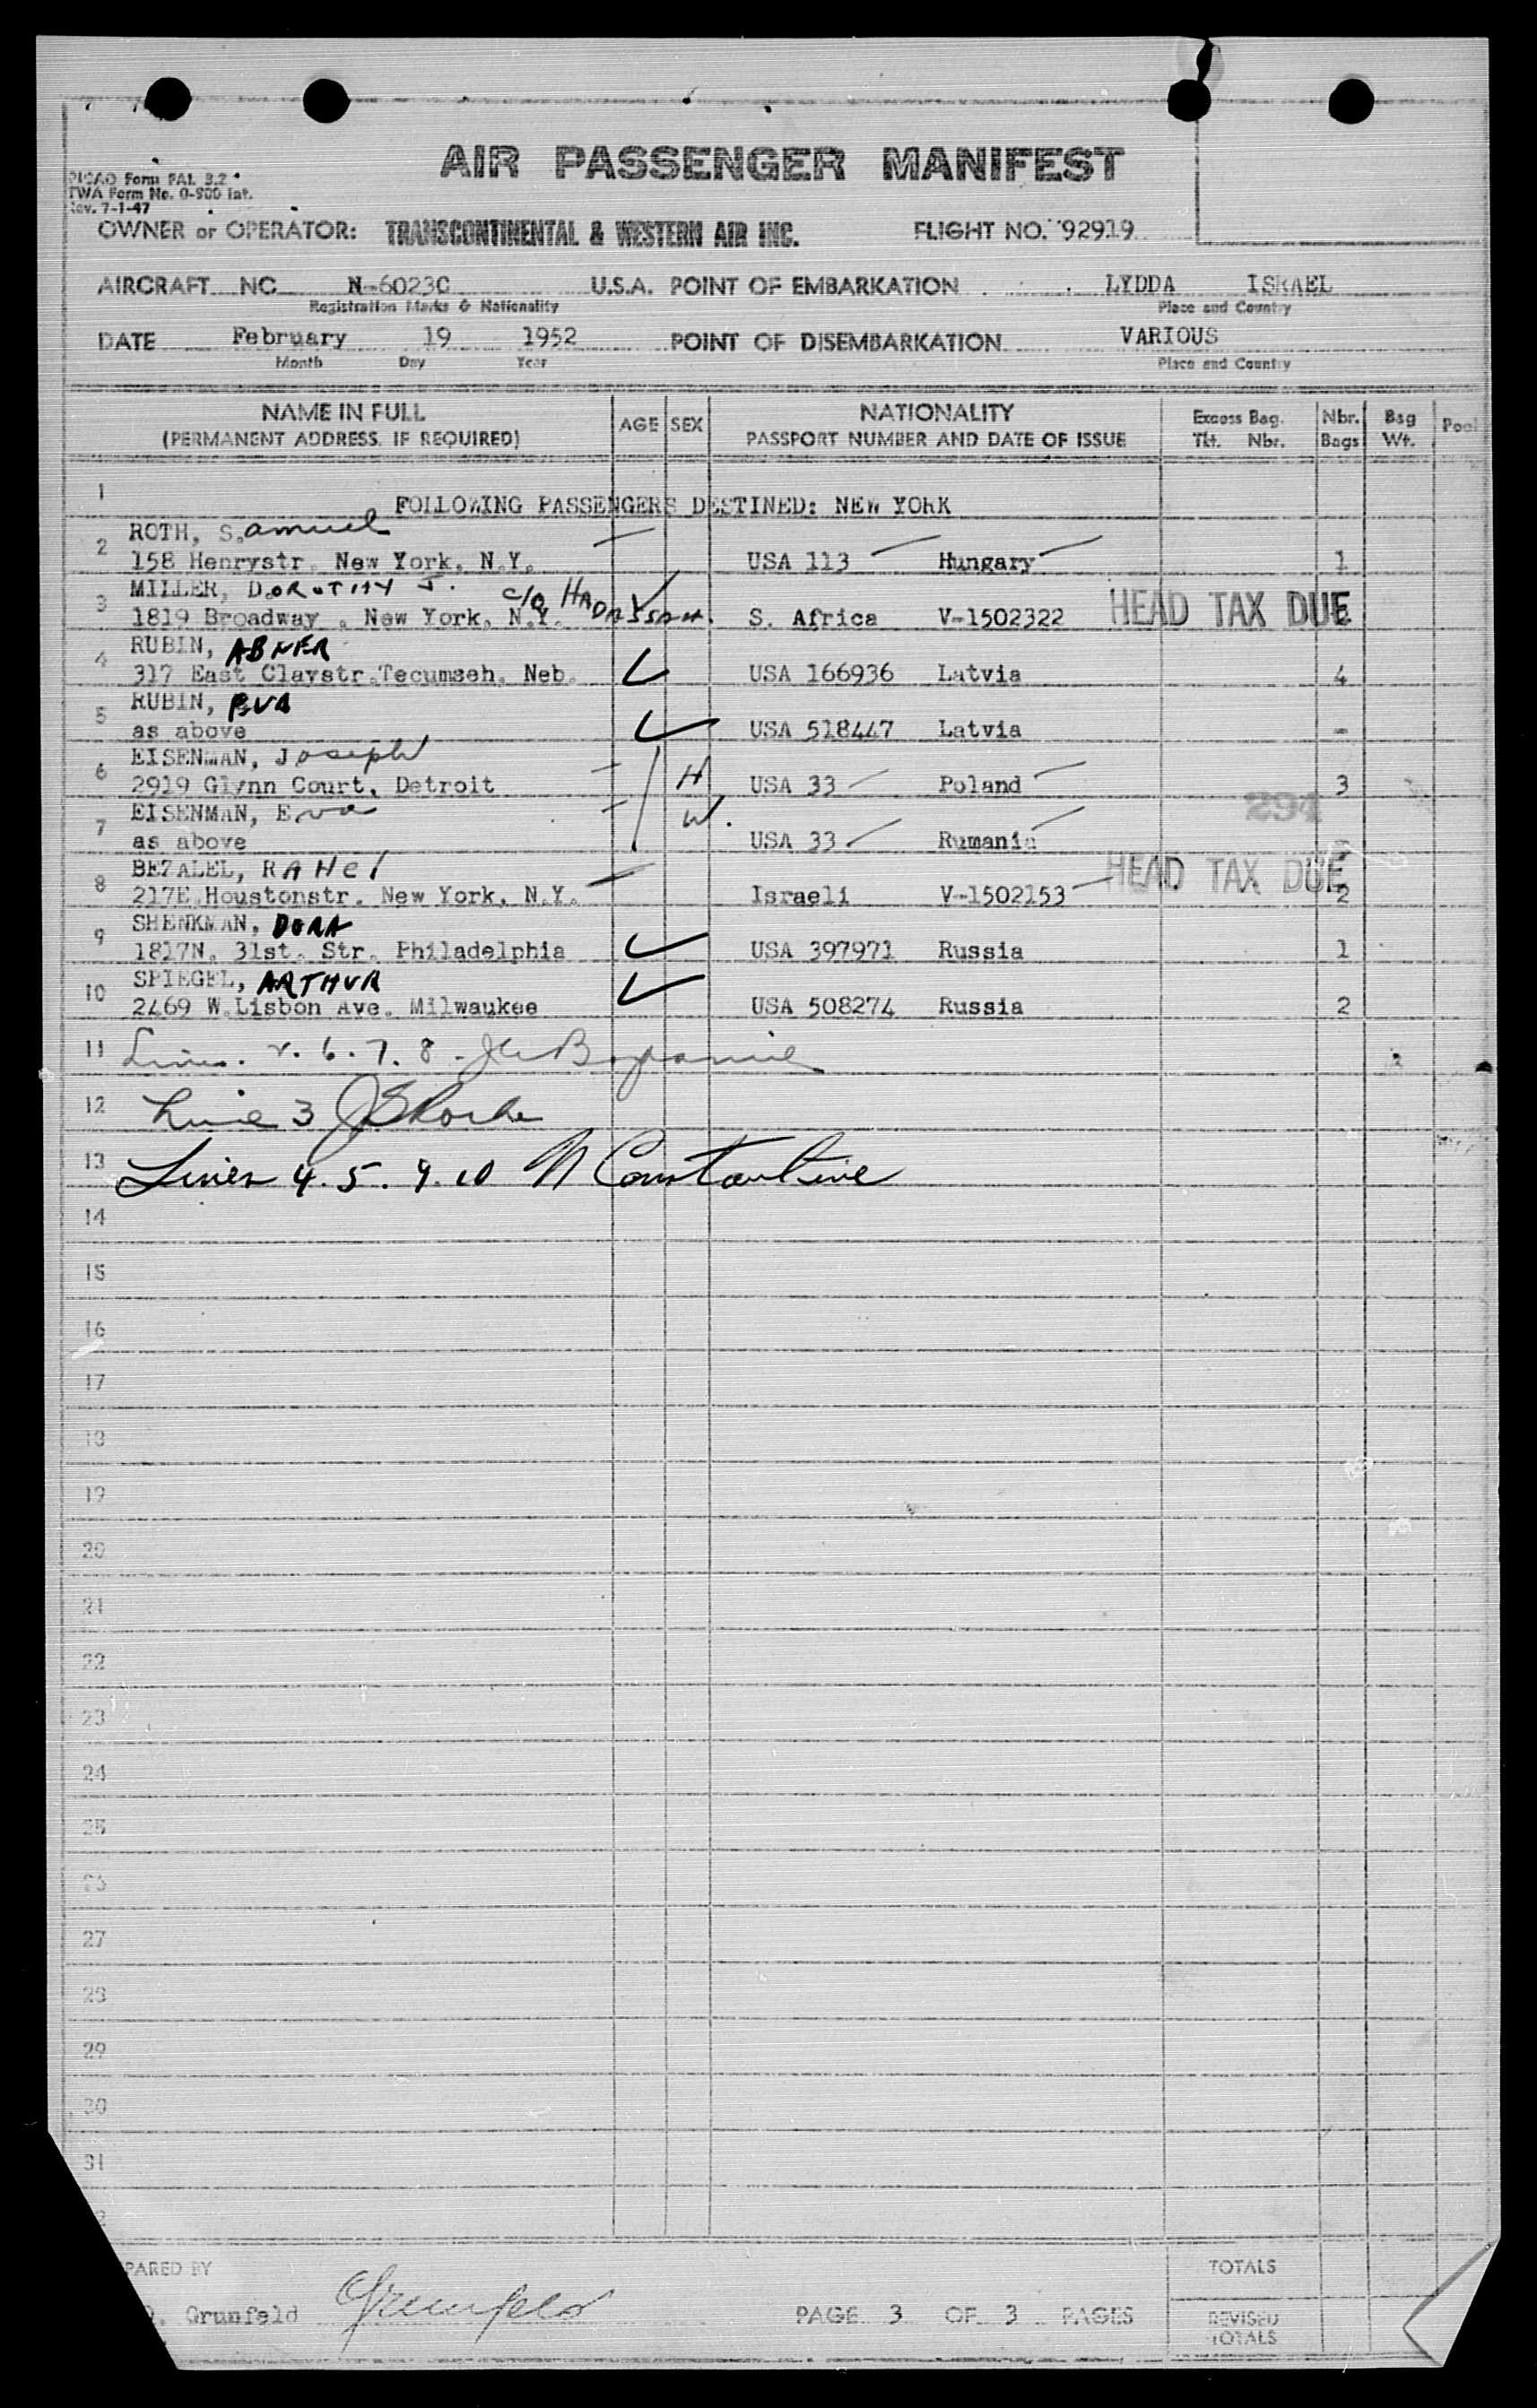 AIR PASSENGER MANIFEST
PICAO Form FAL 3.2
TWA Form No. 0-500 Int.
Rev. 7-1-47
OWNER or OPERATOR: TRANSCONTINENTAL & WESTERN AIR INC. FLIGHT NO. 92919
AIRCRAFT NC N-6023C U.S.A. POINT OF EMBARKATION LYDDA ISRAEL
Registration Marks & Nationality Place and Country
DATE February 19 1952 POINT OF DISEMBARKATION VARIOUS
Month Day Year Place and Country
NAME IN FULL AGE SEX NATIONALITY Excess Bag. Nbr. Bag Pool
(PERMANENT ADDRESS IF REQUIRED) PASSPORT NUMBER AND DATE OF ISSUE Tkt. Nbr. Bags Wt.
1 FOLLOWING PASSENGERS DESTINED: NEW YORK
ROTH, Samuel
2 158 Henrystr. New York, N.Y. USA 113 Hungary 1
MILLER, DOROTHY J. c/o HADASSAH.
3 1819 Broadway. New York, N.Y. S. Africa V-1502322 HEAD TAX DUE
RUBIN, ABNER
4 317 East Claystr.Tecumseh, Neb. USA 166936 Latvia 4
RUBIN, EVA
5 as above USA 518447 Latvia -
EISENMAN, Joseph
6 2919 Glynn Court, Detroit H USA 33 Poland 3
EISENMAN, Eva W. 294
7 as above USA 33 Rumania
BEZALEL, RAHel
8 217E.Houstonstr. New York, N.Y. Israeli V-1502153 HEAD TAX DUE 2
SHENKMAN, DORA
9 1817N. 31st. Str. Philadelphia USA 397971 Russia 1
SPIEGEL, ARTHUR
10 2469 W.Lisbon Ave. Milwaukee USA 508274 Russia 2
11 Lines. 2. 6. 7. 8.
12 Line 3
13 Lines 4. 5. 9. 10 N Constantine
14
15
16
17
18
19
20
21
22
23
24
25
26
27
28
29
30
31
PARED BY TOTALS
Grunfeld Grunfeld PAGE 3 OF 3 PAGES REVISED
TOTALS